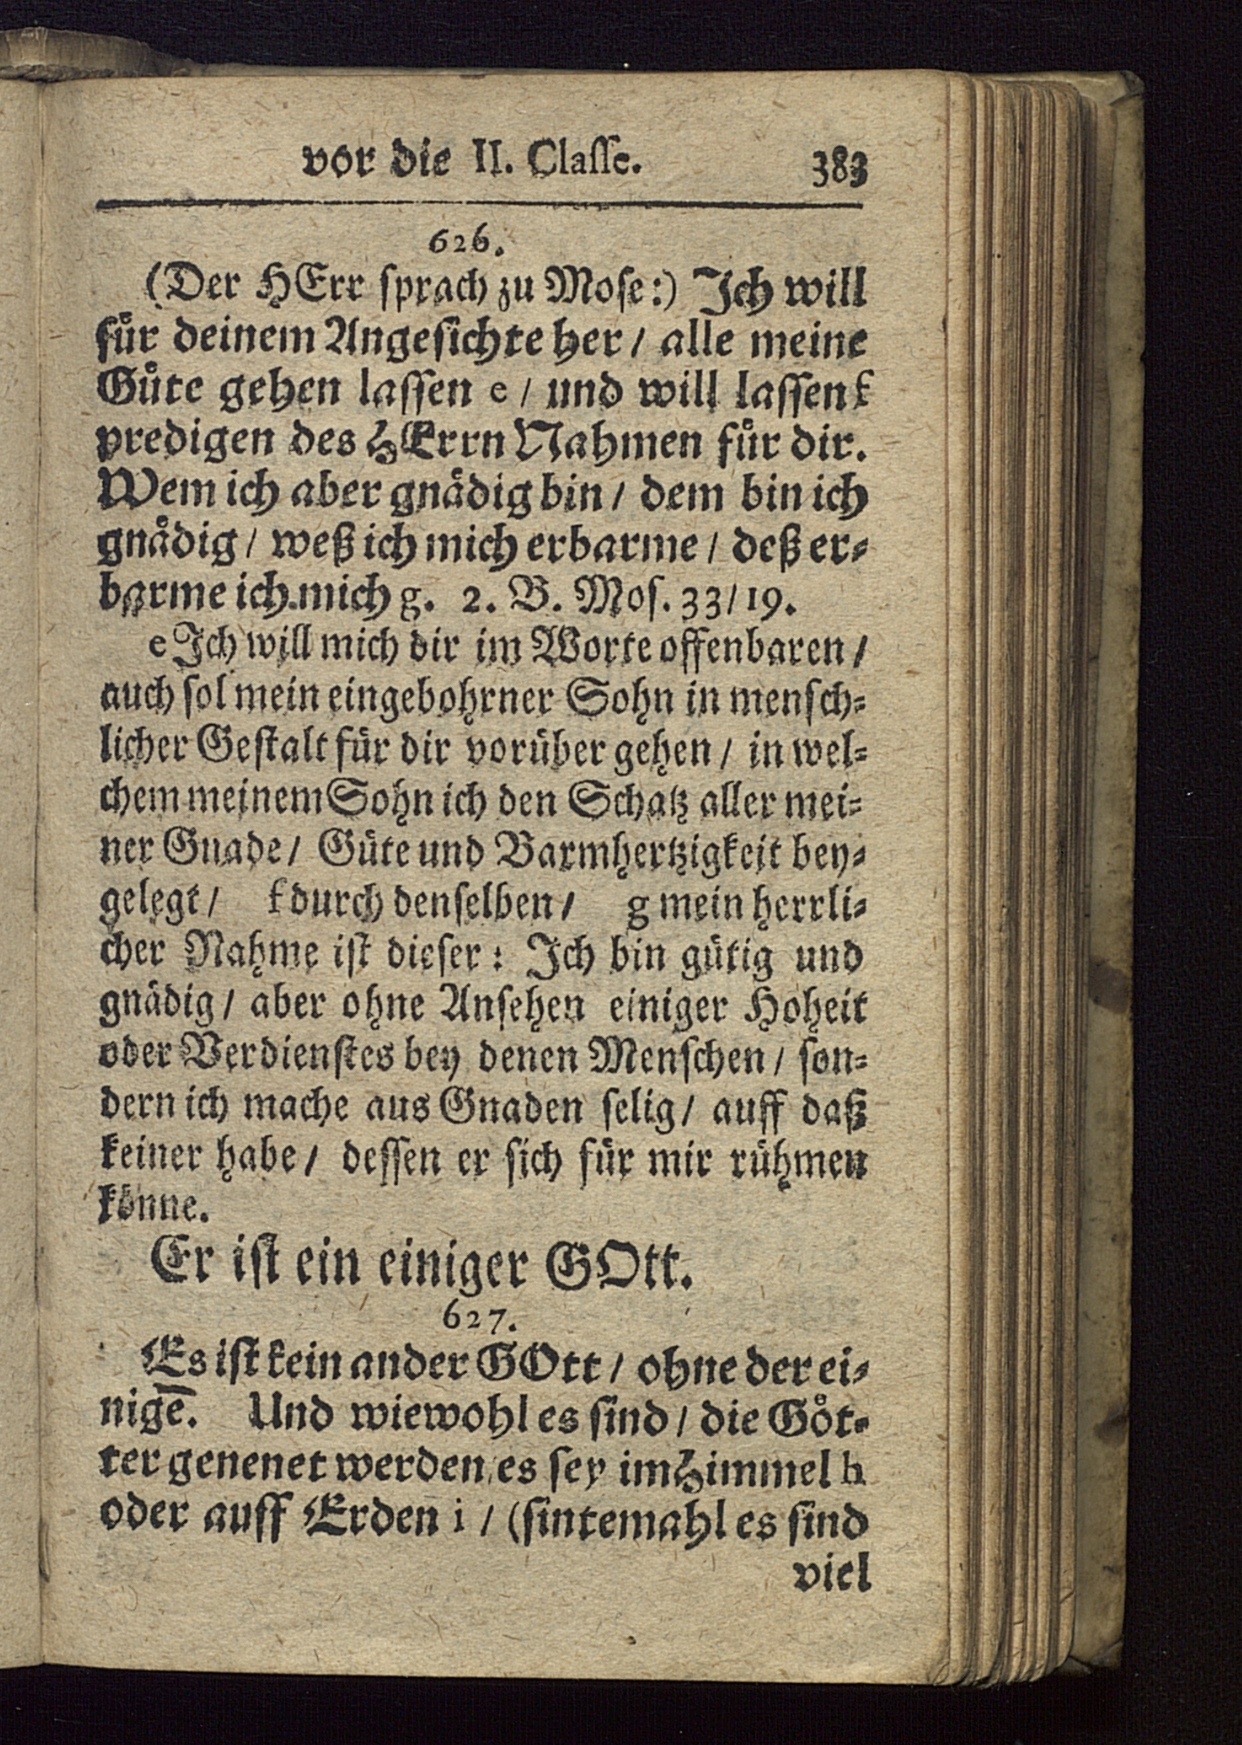 vor die II. Claſſe. 383
626.
(Der HErr ſprach zu Moſe:) Ich will
fuͤr deinem Angeſichte her / alle meine
Guͤte gehen laſſen e / und will laſſen f
predigen des HErrn Nahmen fuͤr dir.
Wem ich aber gnaͤdig bin / dem bin ich
gnaͤdig / weß ich mich erbarme / deß er⸗
barme ich mich g. 2. B. Moſ. 33/19.
e Ich will mich dir im Worte offenbaren /
auch ſol mein eingebohrner Sohn in menſch⸗
licher Geſtalt fuͤr dir voruͤber gehen / in wel⸗
chem meinem Sohn ich den Schatz aller mei⸗
ner Gnade / Guͤte und Barmhertzigkeit bey⸗
gelegt / f durch denſelben / g mein herrli⸗
cher Nahme iſt dieſer: Ich bin guͤtig und
gnaͤdig / aber ohne Anſehen einiger Hoheit
oder Verdienſtes bey denen Menſchen / ſon⸗
dern ich mache aus Gnaden ſelig / auff daß
keiner habe / deſſen er ſich fuͤr mir ruͤhmen
koͤnne.
Er iſt ein einiger GOtt.
627.
Es iſt kein ander GOtt / ohne der ei⸗
nigē. Und wiewohl es ſind / die Goͤt⸗
ter genenet werden, es ſey im Himmel h
oder auff Erden i / (ſintemahl es ſind
viel